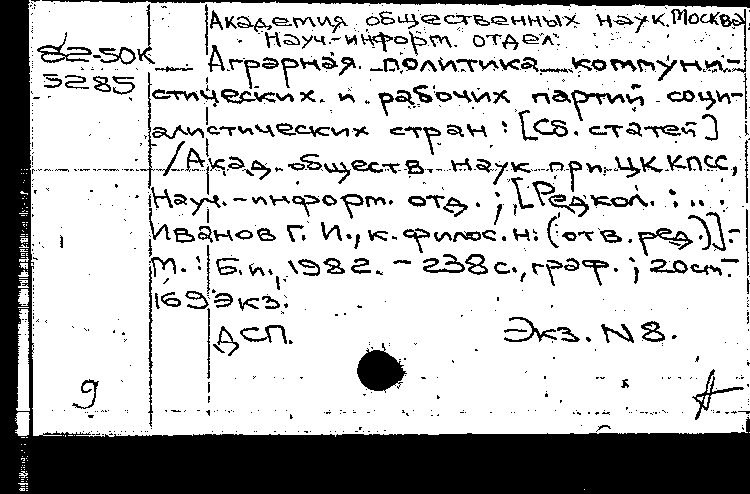 Академия общественных наук. Москва
Науч.-информ. отдел.
82-50К
5285
Аграрная политика коммуни-
стических и рабочих партий соци-
алистических стран : [Сб. статей]
/Акад. обществ. наук при ЦК КПСС,
Науч.-информ. отд. ; [Редкол. : ..
Иванов Г. И., к. филос. н. (отв. ред.)].-
М. : Б. и., 1982. - 238 с., граф. ; 20 см.-
169 экз.
ДСП. Экз. N 8.
9